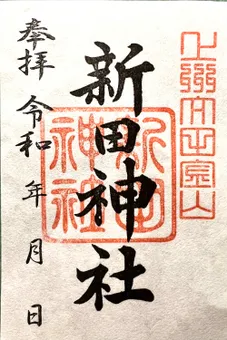 奉拝
新田神社
令和 年 月 日
新田神社